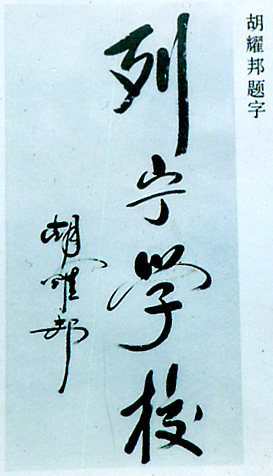 胡耀邦题字
列宁学校
胡耀邦